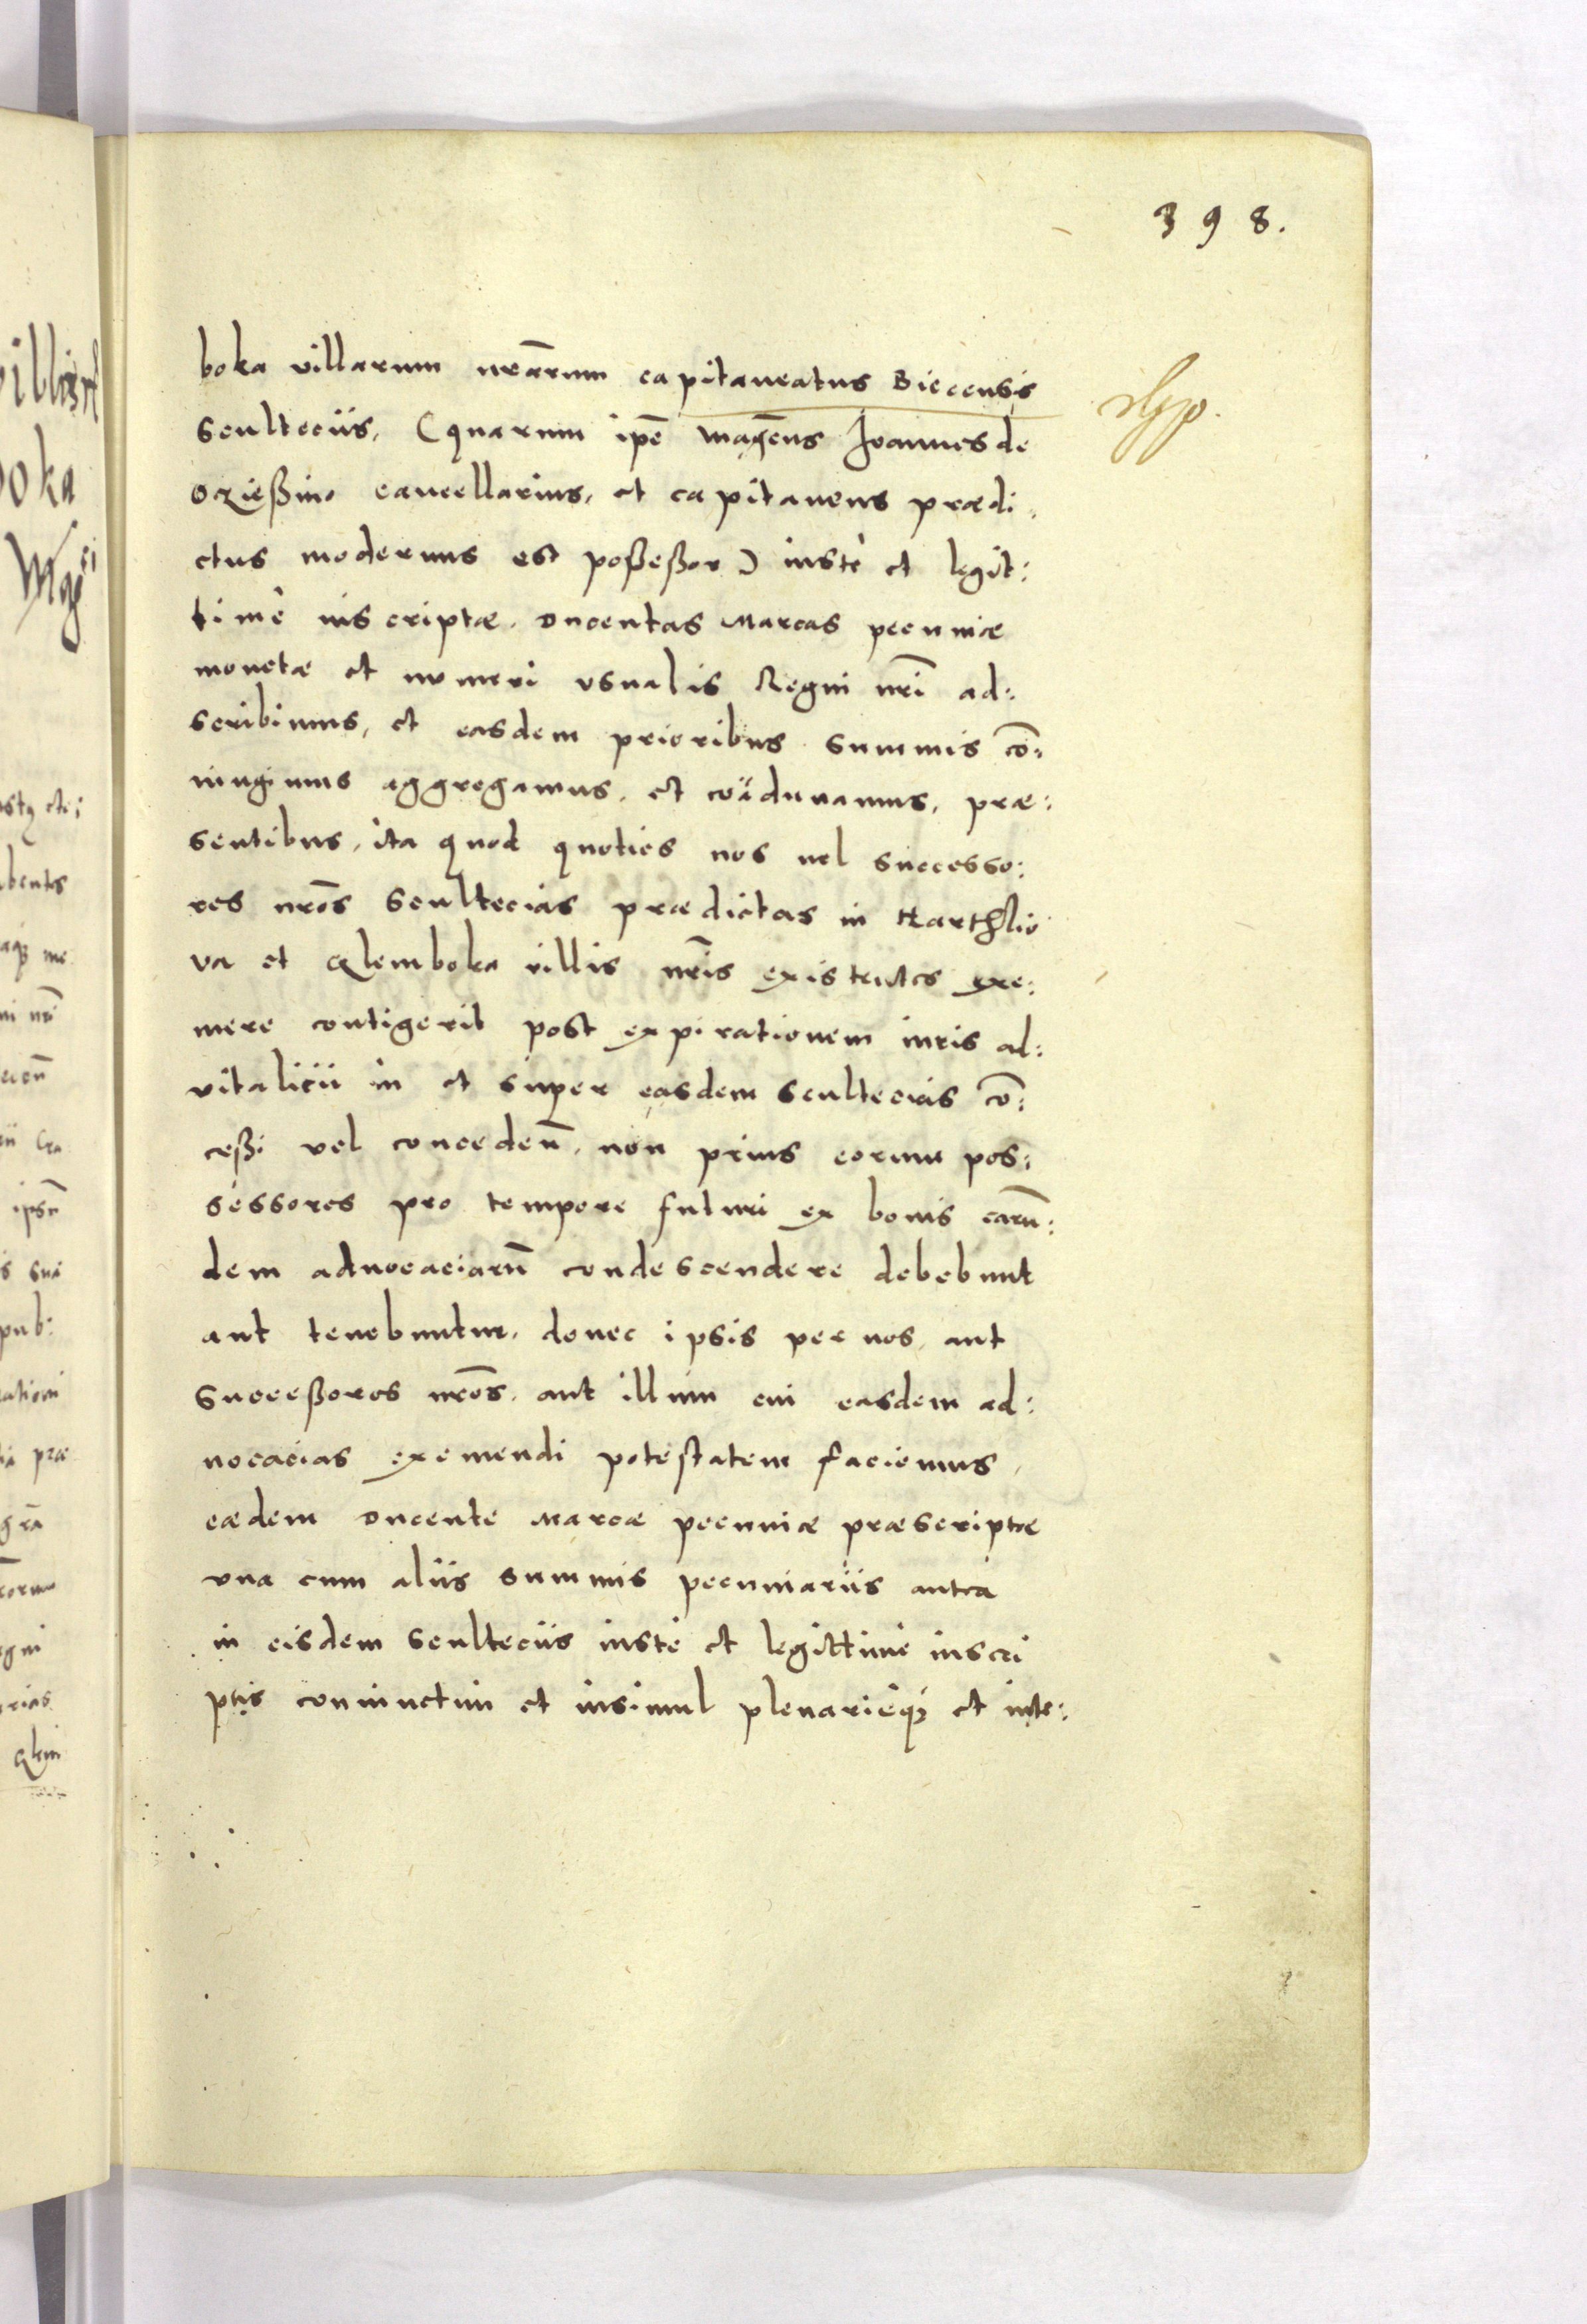 398.
boka villarum nrārum capitaneatus Biecensis
scultecijs, (quarum ipē magcus Joannes de
Ocziessino cancellarius, et capitaneus prædi,
ctus modernus est possessor) iustè et legit:
timè inscriptæ. Ducentas Marcas pecuniæ
monetæ et numeri vsualis Regni nrī ad:
scribimus, et easdem prioribus summis cō:
iungimus aggregamus, et coädunamus, præ:
sentibus, ita quod quoties nos vel successo:
res nrōs scultecias prædictas in Harthlio
va et Glemboka villis nrīs existentes exe:
mere contigerit post expirationem iuris ad:
vitalicij in et super easdem scultecias cō:
cessi vel conceden̄, non prius eorum pos:
sessores pro tempore futuri ex bonis earū:
dem aduocaciarū condescendere debebunt
aut tenebuntur, donec ipsis per nos, aut
successores nrōs, aut illum cui easdem ad:
uocacias exemendi potestatem faciemus,
eædem Ducente Marcæ pecuniæ præscriptæ
vna cum alijs summis pecuniarijs antea
in eisdem scultecijs iustè et legittimè inscri
ptis coniunctim et insimul plenarieqȝ et inte:
villis
boka